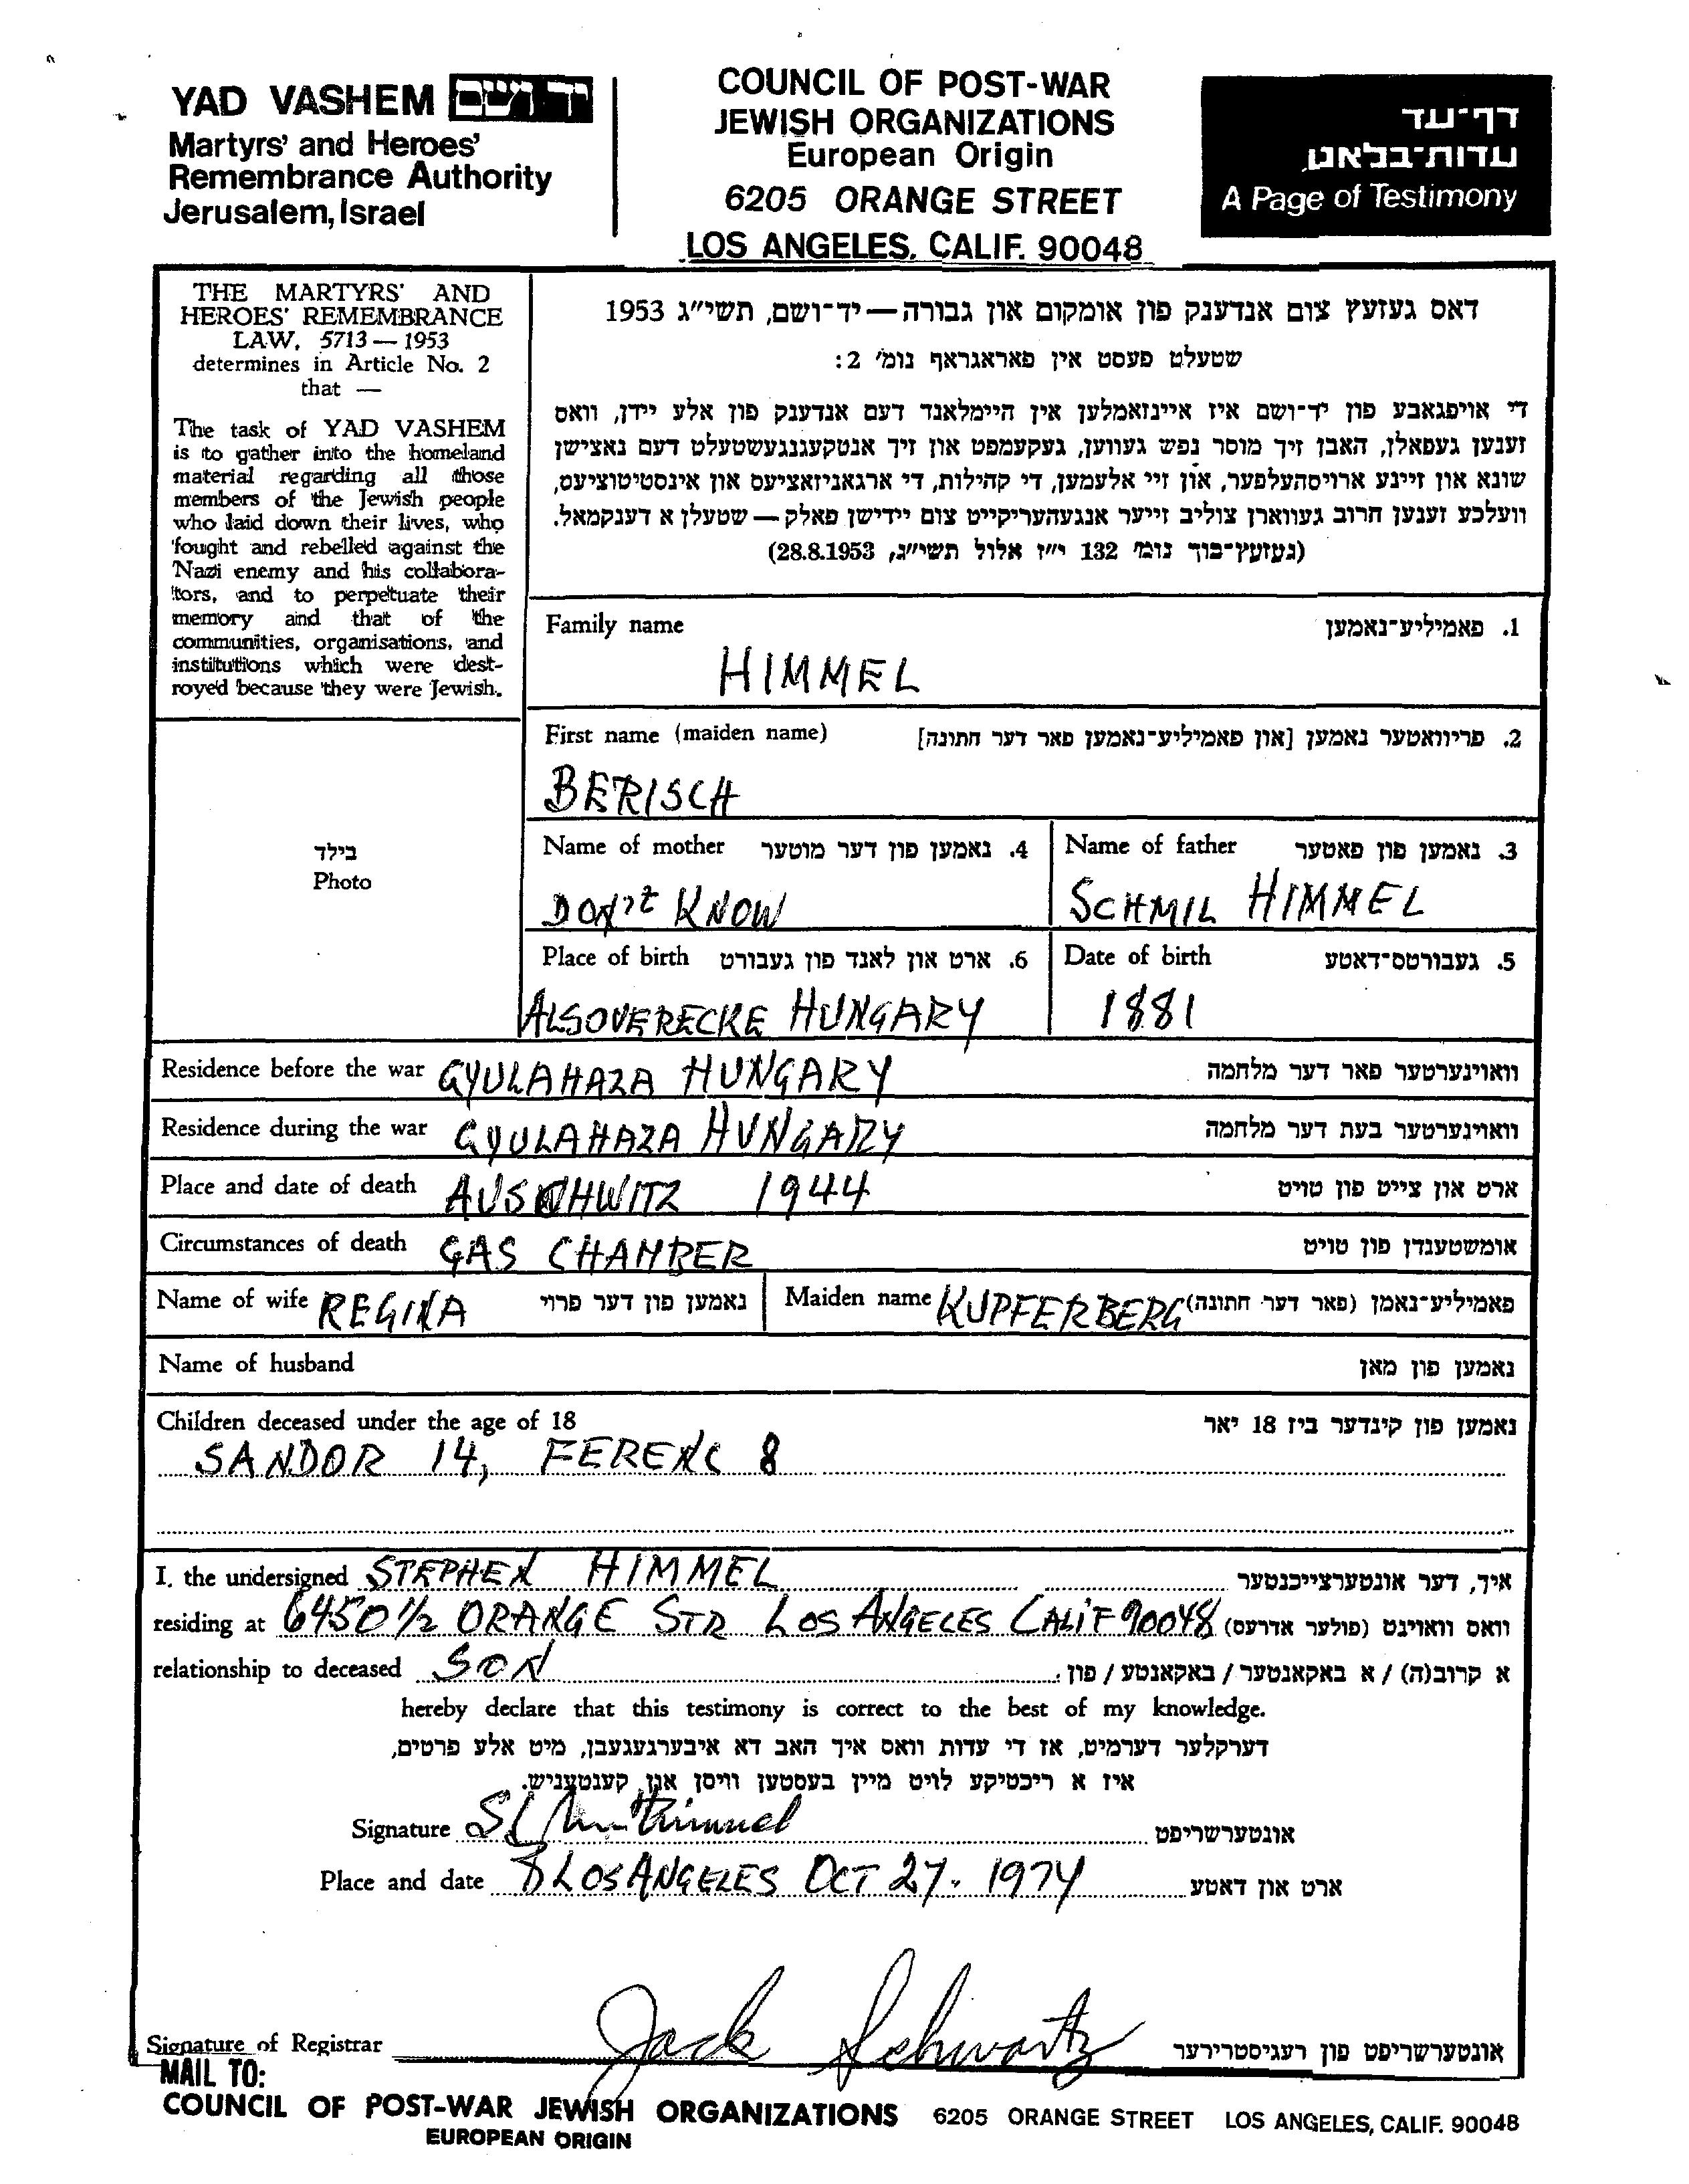 YAD VASHEM יד ושם
Martyrs' and Heroes'
Remembrance Authority
Jerusalem, Israel
COUNCIL OF POST-WAR
JEWISH ORGANIZATIONS
European Origin
6205 ORANGE STREET
LOS ANGELES, CALIF. 90048
דף-עד
עדות-בלאט
A Page of Testimony
THE MARTYRS' AND
HEROES' REMEMBRANCE
LAW, 5713 — 1953
determines in Article No. 2
that —
The task of YAD VASHEM
is to gather into the homeland
material regarding all those
members of the Jewish people
who laid down their lives, who
fought and rebelled against the
Nazi enemy and his collabora-
tors, and to perpetuate their
memory and that of the
communities, organisations, and
institutions which were dest-
royed because they were Jewish.
דאס געזעץ צום אנדענק פון אומקום און גבורה — יד-ושם, תשי"ג 1953
שטעלט פעסט אין פאראגראף נומ' 2:
די אויפגאבע פון יד-ושם איז איינזאמלען אין היימלאנד דעם אנדענק פון אלע יידן, וואס
זענען געפאלן, האבן זיך מוסר נפש געווען, געקעמפט און זיך אנטקעגנגעשטעלט דעם נאצישן
שונא און זיינע ארויסהעלפער, און זיי אלעמען, די קהילות, די ארגאניזאציעס און אינסטיטוציעס,
וועלכע זענען חרוב געווארן צוליב זייער אנגעהעריקייט צום יידישן פאלק — שטעלן א דענקמאל.
(געזעץ-בוך נומ' 132 י"ז אלול תשי"ג, 28.8.1953)
Family name 1. פאמיליע-נאמען
HIMMEL
First name (maiden name) 2. פריוואטער נאמען [און פאמיליע-נאמען פאר דער חתונה]
BERISCH
בילד
Photo
Name of mother 4. נאמען פון דער מוטער Name of father 3. נאמען פון פאטער
DON'T KNOW SCHMIL HIMMEL
Place of birth 6. ארט און לאנד פון געבורט Date of birth 5. געבורטס-דאטע
ALSOVERECKE HUNGARY 1881
Residence before the war GYULAHAZA HUNGARY וואוינערטער פאר דער מלחמה
Residence during the war GYULAHAZA HUNGARY וואוינערטער בעת דער מלחמה
Place and date of death AUSCHWITZ 1944 ארט און צייט פון טויט
Circumstances of death GAS CHAMBER אומשטענדן פון טויט
Name of wife REGINA נאמען פון דער פרוי Maiden name KUPFERBERG פאמיליע-נאמן (פאר דער חתונה)
Name of husband נאמען פון מאן
Children deceased under the age of 18 נאמען פון קינדער ביז 18 יאר
SANDOR 14, FERENC 8
I, the undersigned STEPHEN HIMMEL איך, דער אונטערצייכנטער
residing at 6450 1/2 ORANGE STR LOS ANGELES CALIF 90048 וואס וואוינט (פולער אדרעס)
relationship to deceased SON א קרוב(ה) / א באקאנטער / באקאנטע / פון:
hereby declare that this testimony is correct to the best of my knowledge.
דערקלער דערמיט, אז די עדות וואס איך האב דא איבערגעגעבן, מיט אלע פרטים,
איז א ריכטיקע לויט מיין בעסטען וויסן און קענטעניש.
Signature אונטערשריפט
Place and date LOS ANGELES OCT 27. 1974 ארט און דאטע
Signature of Registrar Jack Schwartz אונטערשריפט פון רעגיסטרירער
MAIL TO:
COUNCIL OF POST-WAR JEWISH ORGANIZATIONS 6205 ORANGE STREET LOS ANGELES, CALIF. 90048
EUROPEAN ORIGIN